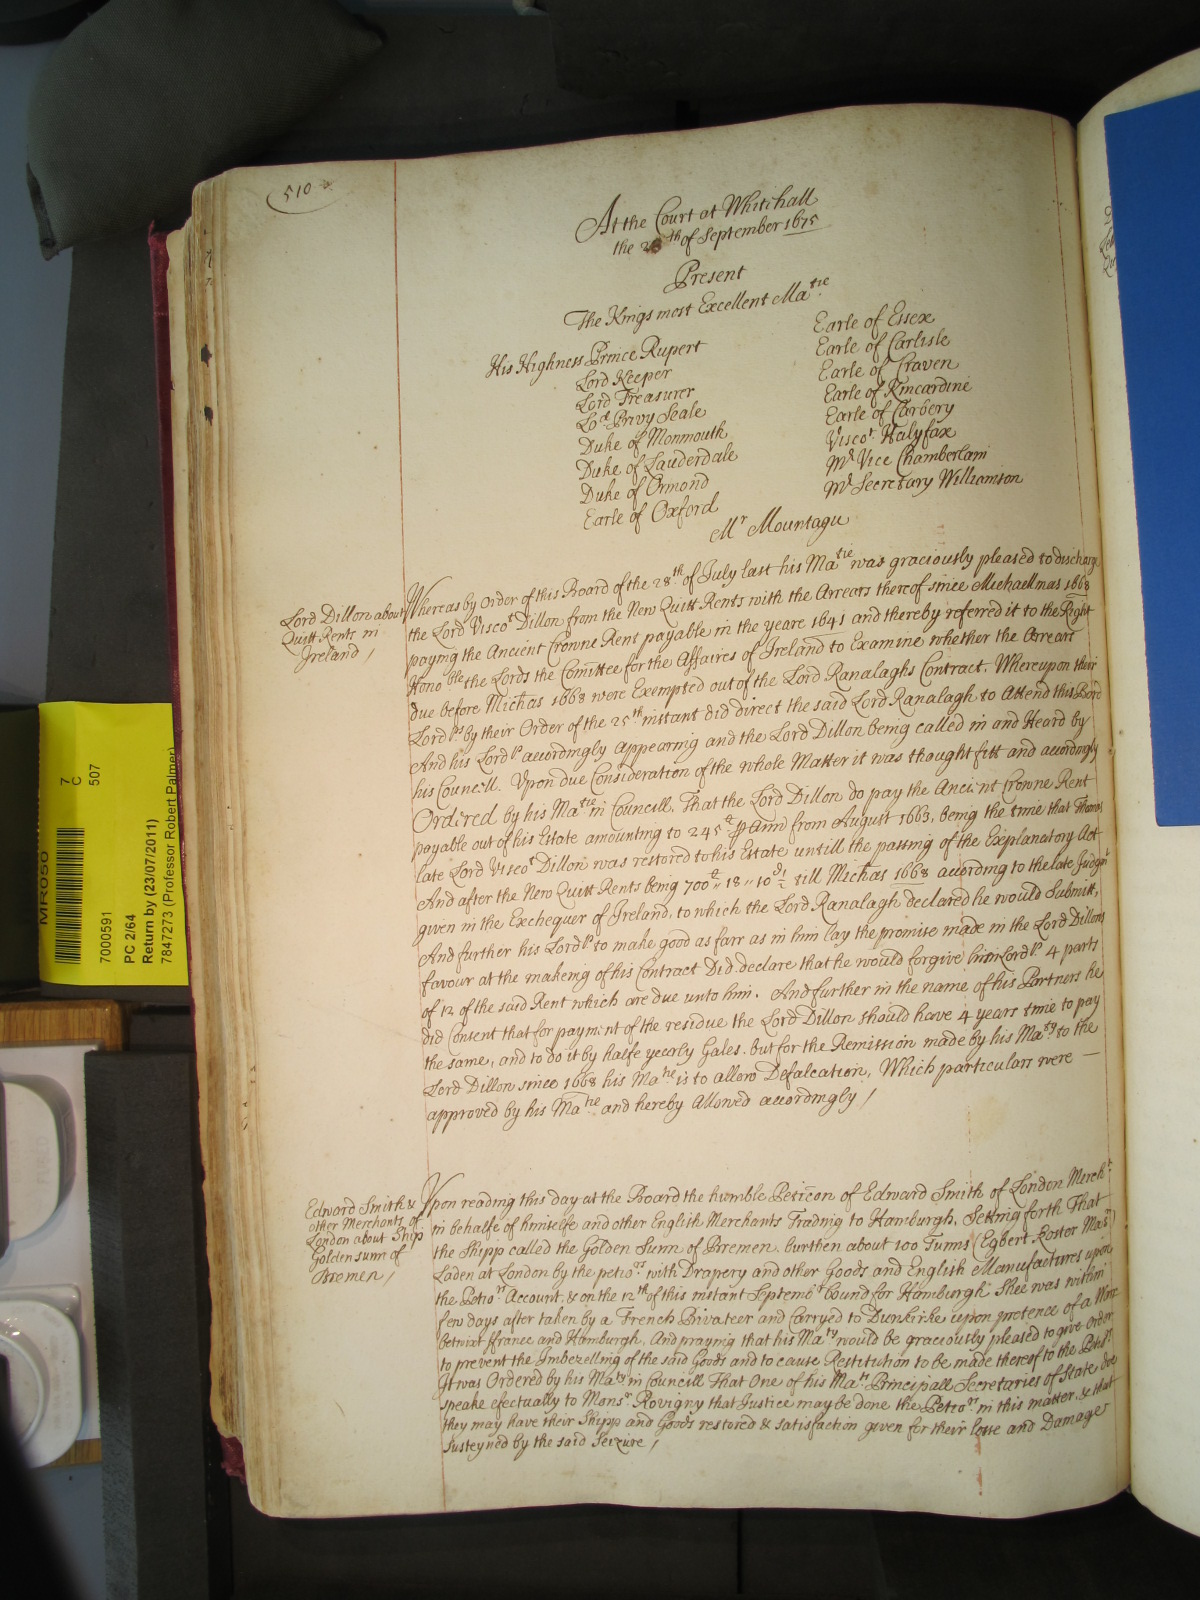 510
At the Court at Whitehall
the 28th of September 1675
Present
The Kings most Excellent Matie
His Highness Prince Rupert
Lord Keeper
Lord Treasurer
Lod Privy Seale
Duke of Monmouth
Duke of Lauderdale
Duke of Ormond
Earle of Oxford
Earle of Essex
Earle of Carlisle
Earle of Craven
Earle of Kincardine
Earle of Carbery
Viscot Halyfax
Mr Vice Chamberlain
Mr Secretary Williamson
Mr Mountagu
Lord Dillon about
Quitt Rents in
Ireland /
Whereas by Order of this Board of the 28th of July last his Matie was graciously pleased to discharge
the Lord Viscot Dillon from the New Quitt Rents with the Arrears thereof since Michaellmas 1668
paying the Ancient Crowne Rent payable in the yeare 1641 and thereby referred it to the Right
Honoble the Lords the Comittee for the Affaires of Ireland to Examine whether the Arrears
due before Michas 1668 were Exempted out of the Lord Ranalaghs Contract. Whereupon their
Lordps by their Order of the 25th instant did direct the said Lord Ranalagh to Attend this Bord
And his Lordp accordingly appearing and the Lord Dillon being called in and Heard by
his Councill. Upon due Consideration of the whole Matter it was thought fitt and accordingly
Ordered by his Matie in Councill, That the Lord Dillon do pay the Ancient Crowne Rent
payable out of his Estate amounting to 245 p Ann from August 1663, being the time that Thomas
late Lord Viscot Dillon was restored to his Estate untill the passing of the Explanatory Act
And after the New Quitt Rents being 700 18 10 till Michas 1668 according to the late Judgmt
given in the Exchequer of Ireland, to which the Lord Ranalagh declared he would Submitt,
And further his Lordp to make good as farr as in him lay the promise made in the Lord Dillons
favour at the makeing of his Contract Did declare that he would forgive his Lordp 4 parts
of 12 of the said Rent which are due unto him. And further in the name of his Partners he
did Consent that for payment of the residue the Lord Dillon should have 4 years time to pay
the same, and to do it by halfe yearly Gales. but for the Remission made by his Maty to the
Lord Dillon since 1668 his Matie is to allow Defalcation, Which particulars were —
approved by his Matie and hereby Allowed accordingly /
Edward Smith &
other Merchants of
London about Ship
Golden sunn of
Bremen /
Upon reading this day at the Board the humble Peticon of Edward Smith of London Mercht
in behalfe of himselfe and other English Merchants Trading to Hamburgh, Setting forth That
the Shipp called the Golden Sunn of Bremen burthen about 100 Tunns (Egbert Koster Mastr)
Laden at London by the petiors with Drapery and other Goods and English Manufactures upon
the Petiors Account, & on the 12th of this instant Septembr bound for Hamburgh Shee was within
few days after taken by a French Privateer and Carryed to Dunkirke upon pretence of a Warr
betwixt ffrance and Hamburgh, And praying that his Maty would be graciously pleased to give Order
to prevent the Imbezelling of the said Goods and to cause Restitution to be made thereof to the Petiors
It was Ordered by his Maty in Councill That One of his Mats Principall Secretaries of State doe
speake efectually to Monsr Rovigny that Justice may be done the Petiors in this matter, & that
they may have their Shipp and Goods restored & satisfaction given for their losse and Damages
susteyned by the said Seizure /
MR050
7
C
507
7000591
PC 2/64
Return by (23/07/2011)
7847273 (Professor Robert Palmer)